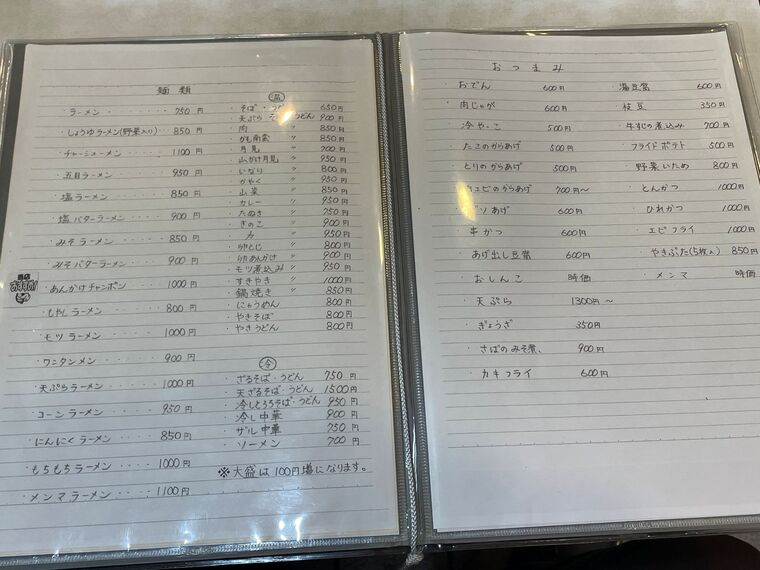 麺類
・ラーメン ・・・・・・ 750円
・しょうゆラーメン(野菜入り)・・ 850円
・チャーシューメン ・・・・ 1100円
・五目ラーメン ・・・・・ 950円
・塩ラーメン ・・・・・ 850円
・塩バターラーメン ・・・・ 900円
・みそラーメン ・・・・・ 850円
・みそバターラーメン ・・・・ 900円
当店おすすめ!
・あんかけチャンポン ・・・・ 1000円
・もやしラーメン ・・・・ 800円
・モツラーメン ・・・・・ 1000円
・ワンタンメン ・・・・・ 900円
・天ぷらラーメン ・・・・ 1000円
・コーンラーメン ・・・・ 950円
・にんにくラーメン ・・・・ 850円
・もちもちラーメン ・・・・ 1000円
・メンマラーメン ・・・・ 1100円
温
・そば・うどん 650円
・天ぷらそば・うどん 900円
・肉 〃 850円
・かも南蛮 〃 850円
・月見 〃 700円
・山かけ月見 〃 950円
・いなり 〃 800円
・かやく 〃 950円
・山菜 〃 850円
・カレー 〃 950円
・たぬき 〃 750円
・きのこ 〃 900円
・力 〃 950円
・卵とじ 〃 800円
・卵あんかけ 〃 900円
・モツ煮込み 〃 950円
・すきやき 〃 1000円
・鍋焼き 〃 850円
・にゅうめん 800円
・やきそば 800円
・やきうどん 800円
冷
・ざるそば・うどん 750円
・天ざるそば・うどん 1500円
・冷しとろろそば・うどん 950円
・冷し中華 900円
・ザル中華 750円
・ソーメン 700円
※大盛は100円増になります。
おつまみ
・おでん 600円
・肉じゃが 600円
・冷やっこ 500円
・たこのからあげ 500円
・とりのからあげ 500円
エビのからあげ 700円〜
ゲソあげ 600円
・串かつ 600円
・あげ出し豆腐 600円
・おしんこ 時価
・天ぷら 1300円〜
・ぎょうざ 350円
・さばのみそ煮、 900円
・カキフライ 600円
・湯豆腐 600円
・枝豆 350円
・牛すじの煮込み 700円
・フライドポテト 500円
・野菜いため 800円
・とんかつ 1000円
・ひれかつ 1000円
・エビフライ 1000円
・やきぶた(5枚入) 850円
・メンマ 時価